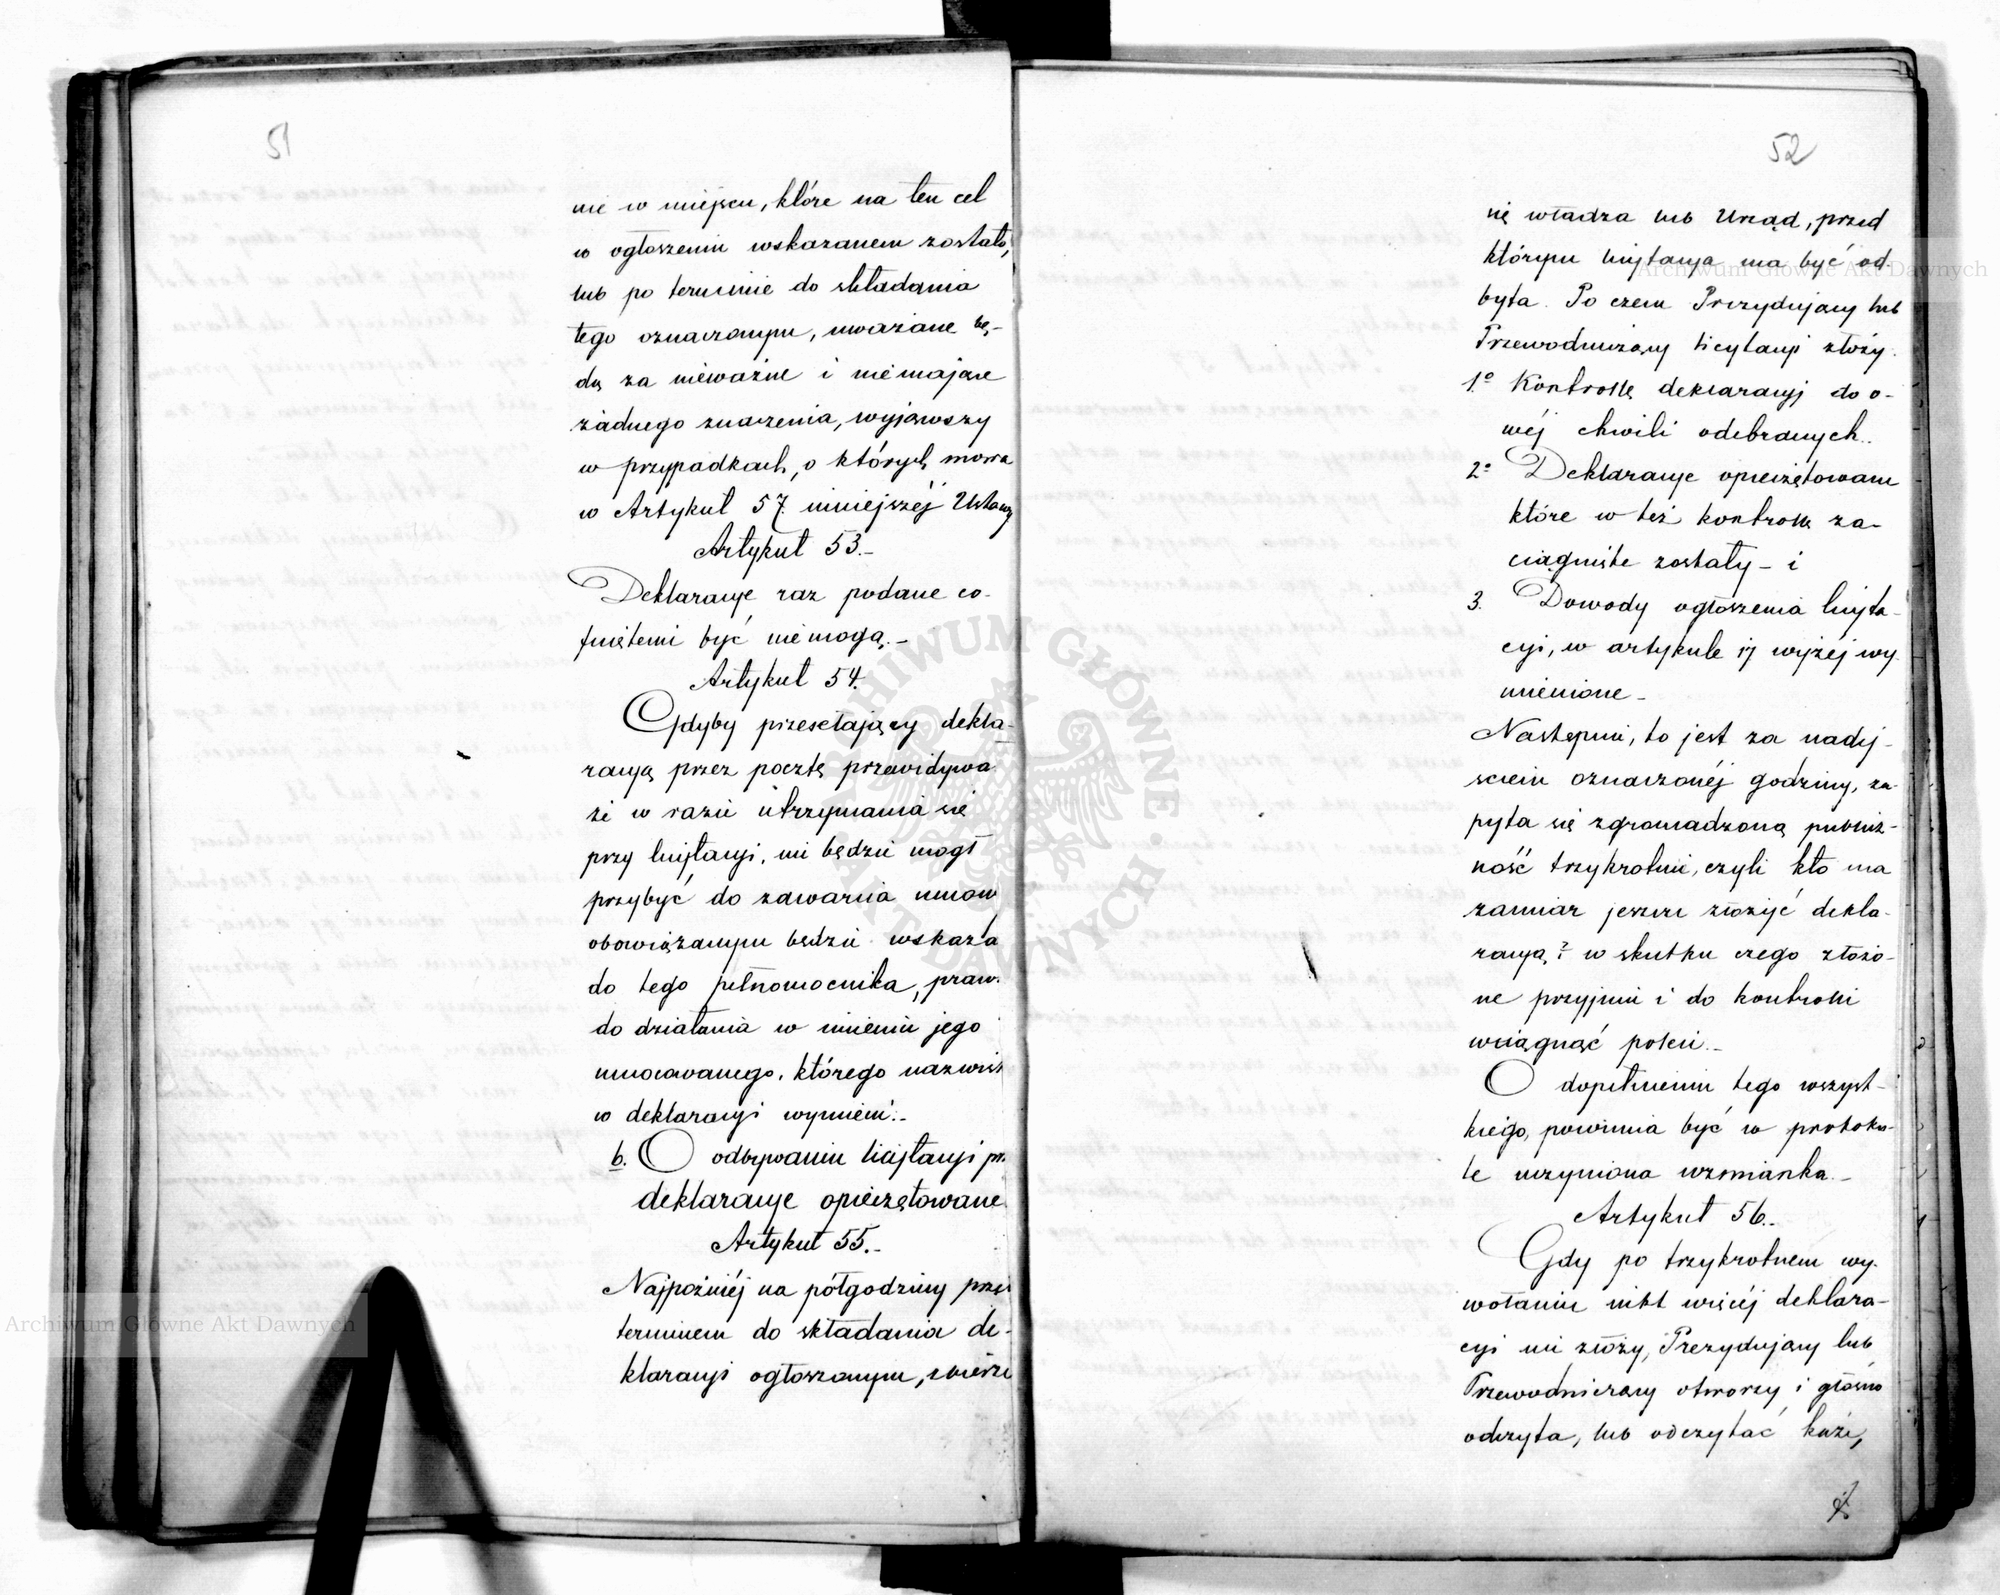 51
nie w miejscu, które na ten cel
w ogłoszeniu wskazanem zostało,
lub po terminie do składania
tego oznaczonym, uważane bę-
dą za nieważne i nie mające
żadnego znaczenia, wyjąwszy
w przypadkach, o których mowa
w Artykul 57. niniejszéj Ustawy
Artykuł 53.-
Deklaracye raz podane co-
fniętemi być nie mogą.-
Artykuł 54.
Gdyby przesełający dekla-
racyą przez pocztę przewidywa
że w razie utrzymania się
przy licytacyi, nie będzie mógł
przybyć do zawarcia umow
obowiązanym będzie wskaza
do tego pełnomocnika, praw.
do działania w imieniu jego
umocowanego, którego nazwis
w deklaracyi wymieni.-
b. O odbywaniu licytacyi pr.
deklaracye opieczętowane
Artykuł 55.-
Najpóźniéj na półgodziny prze
terminem do składania de-
klaracyi ogłoszonym, zbierze
52
się władza lub Urząd, przed
którym licytacya ma być od-
byta. Po czem Prezydujący lub
Przewodniczący licytacyi złoży.
1º Kontrollę deklaracyj do o-
wéj chwili odebranych..
2º Deklaracye opieczętowane
które w też kontrollę za-
ciągnięte zostały - i
3. Dowody ogłoszenia licyta-
cyi, w artykule 17 wyżéj wy-
mienione -
Następnie, to jest za nadej-
sciem oznaczonéj godziny, za-
pyta się zgromadzoną publicz-
ność trzykrotnie, czyli kto ma
zamiar jeszcze złożyć dekla-
racyą? w skutku czego złożo-
ne przyjmie i do kontrolli
wciągnąć poleci.-
O dopełnieniu tego wszyst-
kiego, powinna być w protoku-
le uczyniona wzmianka.-
Artykuł 56.-
Gdy po trzykrotnem wy-
wołaniu nikt więcéj deklara-
cyi nie złoży, Prezydujący lub
Przewodniczący otworzy i głośno
odczyta, lub odczytać każe,
Archiwum Główne Akt Dawnych
Archiwum Główne Akt Dawnych
ARCHIWUM GŁÓWNE AKT DAWNYCH